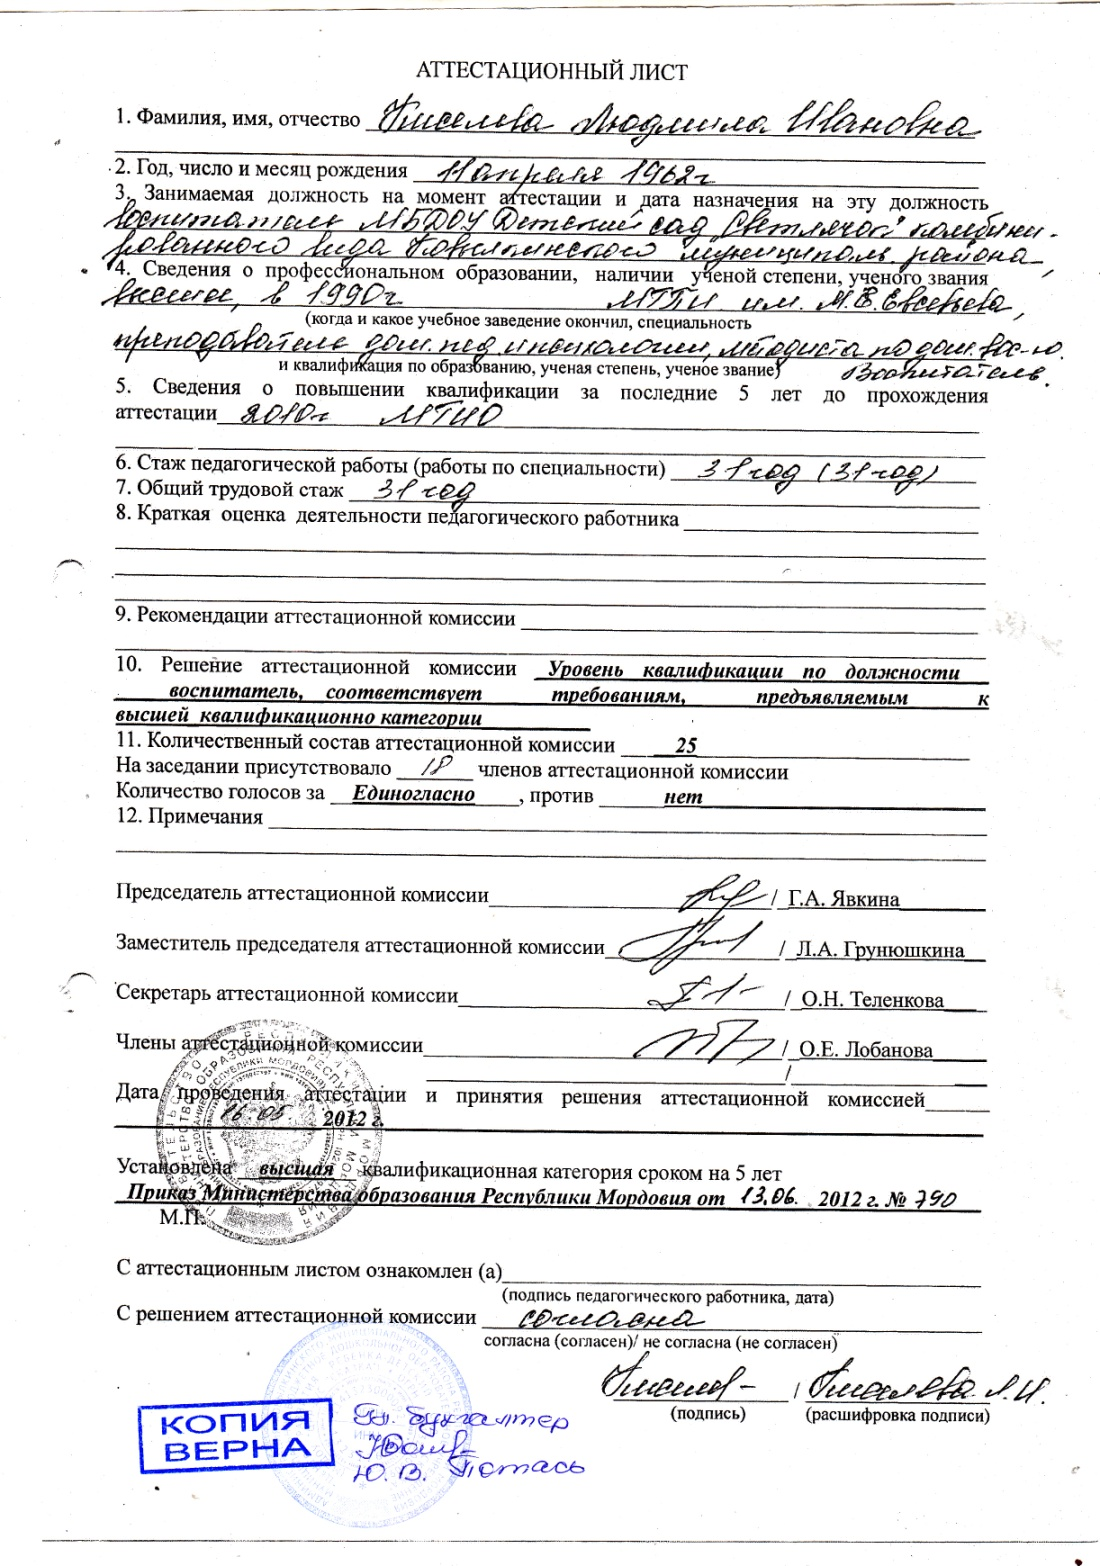 АТТЕСТАЦИОННЫЙ ЛИСТ
1. Фамилия, имя, отчество Киселева Людмила Ивановна
2. Год, число и месяц рождения 11 апреля 1962г
3. Занимаемая должность на момент аттестации и дата назначения на эту должность
воспитатель МБДОУ Детский сад "Светлячок" комбини-
рованного вида Ковылкинского муниципаль. района,
4. Сведения о профессиональном образовании, наличии ученой степени, ученого звания
высшее, в 1990г МГПИ им. М.Е. Евсевьева,
(когда и какое учебное заведение окончил, специальность
преподаватель дош. пед. и психологии, методиста по дош. вос-ю.
и квалификация по образованию, ученая степень, ученое звание) Воспитатель.
5. Сведения о повышении квалификации за последние 5 лет до прохождения
аттестации 2010г МРИО
6. Стаж педагогической работы (работы по специальности) 31 год (31 год)
7. Общий трудовой стаж 31 год
8. Краткая оценка деятельности педагогического работника
9. Рекомендации аттестационной комиссии
10. Решение аттестационной комиссии Уровень квалификации по должности
воспитатель, соответствует требованиям, предъявляемым к
высшей квалификационно категории
11. Количественный состав аттестационной комиссии 25
На заседании присутствовало 18 членов аттестационной комиссии
Количество голосов за Единогласно, против нет
12. Примечания
Председатель аттестационной комиссии / Г.А. Явкина
Заместитель председателя аттестационной комиссии / Л.А. Грунюшкина
Секретарь аттестационной комиссии / О.Н. Теленкова
Члены аттестационной комиссии / О.Е. Лобанова
/
Дата проведения аттестации и принятия решения аттестационной комиссией
16.05. 2012 г.
Установлена высшая квалификационная категория сроком на 5 лет
Приказ Министерства образования Республики Мордовия от 13.06. 2012 г. № 790
М.П.
С аттестационным листом ознакомлен (а)
(подпись педагогического работника, дата)
С решением аттестационной комиссии согласна
согласна (согласен)/ не согласна (не согласен)
/ Киселева Л.И.
(подпись) (расшифровка подписи)
КОПИЯ
ВЕРНА
Гл. бухгалтер
Ю. В.